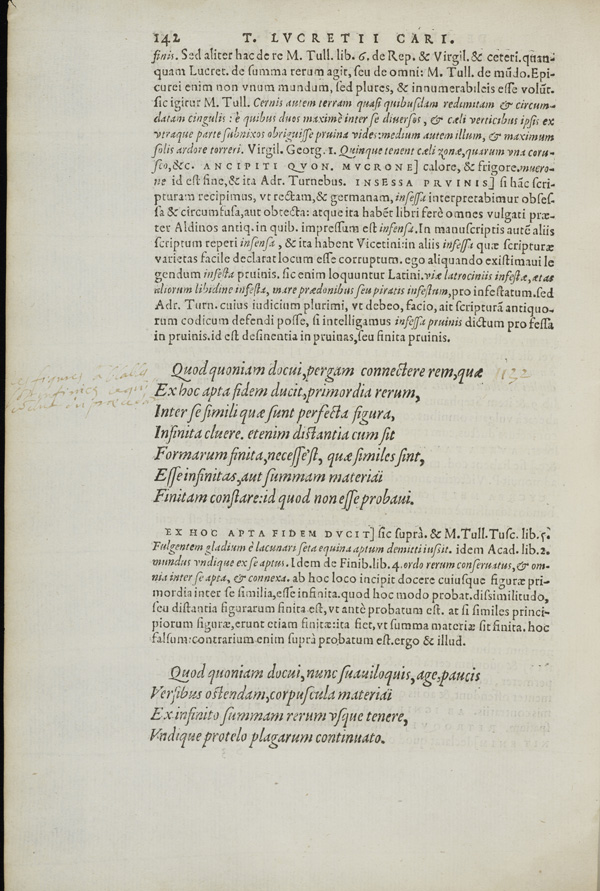 142 T. LVCRETII CARI.
finis. Sed aliter hac de re M. Tull. lib. 6. de Rep. & Virgil. & ceteri. quan-
quam Lucret. de summa rerum agit, seu de omni: M. Tull. de mūdo. Epi-
curei enim non vnum mundum, sed plures, & innumerabileis esse volūt.
sic igitur M. Tull. Cernis autem terram quasi quibusdam redimitam & circum-
datam cingulis: è quibus duos maximè inter se diuersos, & cæli verticibus ipsis ex
vtraque parte subnixos obriguisse pruina vides: medium autem illum, & maximum
solis ardore torreri. Virgil. Georg. 1. Quinque tenent cæli zonæ, quarum vna coru-
sco, &c. ANCIPITI QVON. MVCRONE] calore, & frigore. mucro-
ne id est fine, & ita Adr. Turnebus. INSESSA PRVINIS] si hāc scri-
pturam recipimus, vt rectam, & germanam, insessa interpretabimur obses-
sa & circumfusa, aut obtecta: atque ita habēt libri ferè omnes vulgati præ-
ter Aldinos antiq. in quib. impressum est insensa. In manuscriptis autē aliis
scriptum reperi insensa, & ita habent Vicetini: in aliis insessa quæ scripturæ
varietas facile declarat locum esse corruptum. ego aliquando existimaui le
gendum infesta pruinis. sic enim loquuntur Latini. viæ latrociniis infestæ, ætas
aliorum libidine infesta, mare prædonibus seu piratis infestum, pro infestatum. sed
Adr. Turn. cuius iudicium plurimi, vt debeo, facio, ait scripturā antiquo-
rum codicum defendi posse, si intelligamus infessa pruinis dictum pro fessa
in pruinis. id est desinentia in pruinas, seu finita pruinis.
Quod quoniam docui, pergam connectere rem, quæ
Ex hoc apta fidem ducit, primordia rerum,
Inter se simili quæ sunt perfecta figura,
Infinita cluere. etenim distantia cum sit
Formarum finita, necesse'st, quæ similes sint,
Esse infinitas, aut summam materiaï
Finitam constare: id quod non esse probaui.
EX HOC APTA FIDEM DVCIT] sic suprà. & M. Tull. Tusc. lib. 5.
Fulgentem gladium è lacunari seta equina aptum demitti iussit. idem Acad. lib. 2.
mundus vndique ex se aptus. Idem de Finib. lib. 4. ordo rerum conseruatus, & om-
nia inter se apta, & connexa. ab hoc loco incipit docere cuiusque figuræ pri-
mordia inter se similia, esse infinita. quod hoc modo probat. dissimilitudo,
seu distantia figurarum finita est, vt antè probatum est. at si similes princi-
piorum figuræ, erunt etiam finitæ: ita fiet, vt summa materiæ sit finita. hoc
falsum: contrarium enim suprà probatum est. ergo & illud.
Quod quoniam docui, nunc suauiloquis, age, paucis
Versibus ostendam, corpuscula materiaï
Ex infinito summam rerum vsque tenere,
Vndique protelo plagarum continuato.